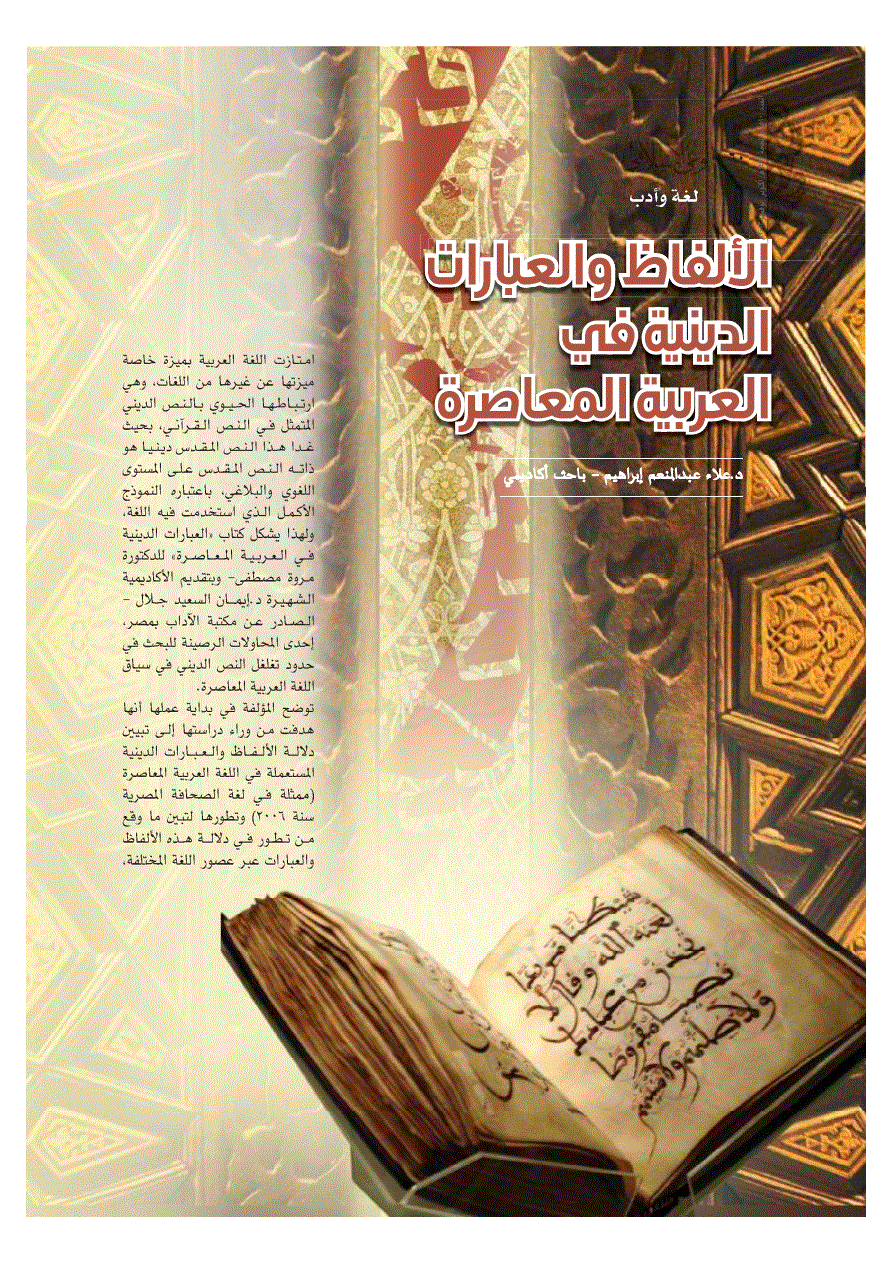 لغة وأدب
الألفاظ والعبارات
الدينية في
العربية المعاصرة
د.علاء عبدالمنعم إبراهيم - باحث أكاديمي
امتازت اللغة العربية بميزة خاصة
ميزتها عن غيرها من اللغات، وهي
ارتباطها الحيوي بالنص الديني
المتمثل في النص القرآني، بحيث
غدا هذا النص المقدس دينيا هو
ذاته النص المقدس على المستوى
اللغوي والبلاغي، باعتباره النموذج
الأكمل الذي استخدمت فيه اللغة،
ولهذا يشكل كتاب «العبارات الدينية
في العربية المعاصرة» للدكتورة
مروة مصطفى- وبتقديم الأكاديمية
الشهيرة د.إيمان السعيد جلال -
الصادر عن مكتبة الآداب بمصر،
إحدى المحاولات الرصينة للبحث في
حدود تغلغل النص الديني في سياق
اللغة العربية المعاصرة.
توضح المؤلفة في بداية عملها أنها
هدفت من وراء دراستها إلى تبيين
دلالة الألفاظ والعبارات الدينية
المستعملة في اللغة العربية المعاصرة
(ممثلة في لغة الصحافة المصرية
سنة ٢٠٠٦) وتطورها لتبين ما وقع
من تطور في دلالة هذه الألفاظ
والعبارات عبر عصور اللغة المختلفة،
لعنه الله وقال لا